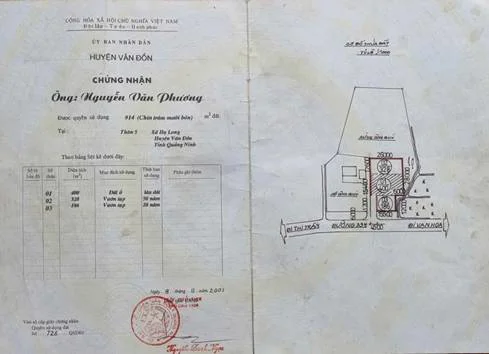 CỘNG HÒA XÃ HỘI CHỦ NGHĨA VIỆT NAM
Độc lập - Tự do - Hạnh phúc
ỦY BAN NHÂN DÂN
HUYỆN VÂN ĐỒN
CHỨNG NHẬN
Ông: Nguyễn Văn Phương
Được quyền sử dụng 914 (Chín trăm mười bốn) m² đất
Tại: Thôn 5 Xã Hạ Long
Huyện Vân Đồn
Tỉnh Quảng Ninh
Theo bảng liệt kê dưới đây:
Số tờ bản đồ Số thửa Diện tích (m²) Mục đích sử dụng Thời hạn sử dụng Phần ghi thêm
01 400 Đất ở lâu dài
02 328 Vườn tạp 50 năm
03 186 Vườn tạp 20 năm
Ngày tháng năm 2001
Vào sổ cấp giấy chứng nhận
Quyền sử dụng đất
Số 726 QSDĐ/
SƠ ĐỒ THỬA ĐẤT
25000
ĐƯỜNG 334
ĐI VAN HOA